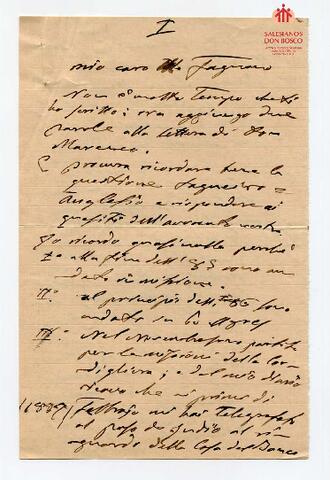 SALESIANOS
DON BOSCO
I
mio caro Fagnano
Non è molto tempo che ti
ho scritto; ora aggiungo due
parole alla lettera di Don
Marenco.
procura ricordare bene la
questione Fagnano =
e rispondere ai
quesiti dell'avvocato
Io ricordo quasi nulla perchè
I° alla fine dell'85 sono an
dato in missione.
II° al principio dell'86 sono
andato in B Ayres
III° Nel Novembre sono partito
per la missione della Cor
digliera; e dal mio diario
ricavo che ai primi di
(1887) Febbraio mi hai telegrafato
al passo de Indio ai ri
guardo della Casa del Banco